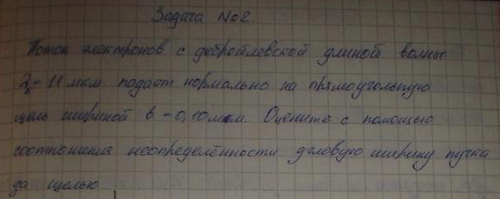 Задача №2.
Поток электронов с дебройлевской длиной волны
λ=11 мкм падает нормально на прямоугольную
щель шириной в =0,10мкм. Оцените с помощью
соотношения неопределённости угловую ширину пучка
за щелью